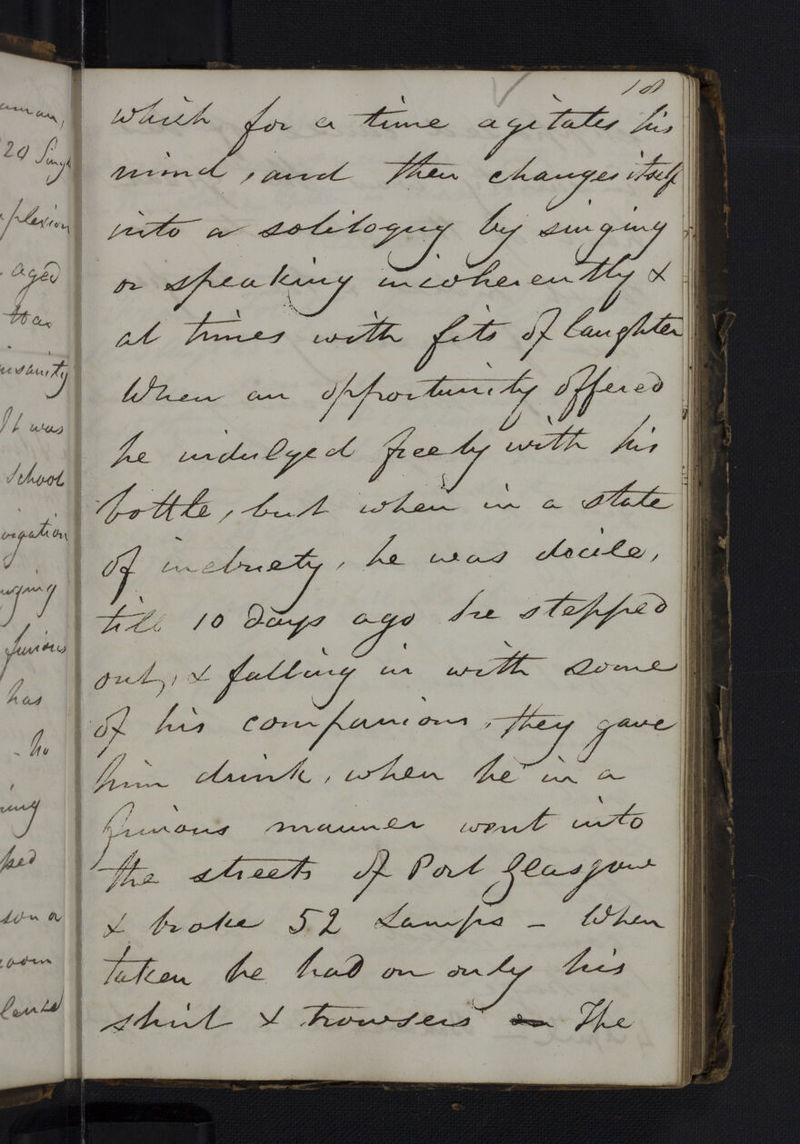 18
which for a time agitates his
mind, and then changes itself
into a soliloquy by singing
or speaking incoherently &
at times with fits of laughter
When an opportunity offered
he indulged freely with his
bottle, but when in a state
of inebriety, he was docile,
till 10 days ago he stepped
out, & falling in with some
of his companions, they gave
him drink, when he in a
furious manner went into
the streets of Port Glasgow
& broke 52 Lamps – When
taken he had on only his
shirt & trowsers The
20
plexion
aged
insanity
It was
School
furious
has